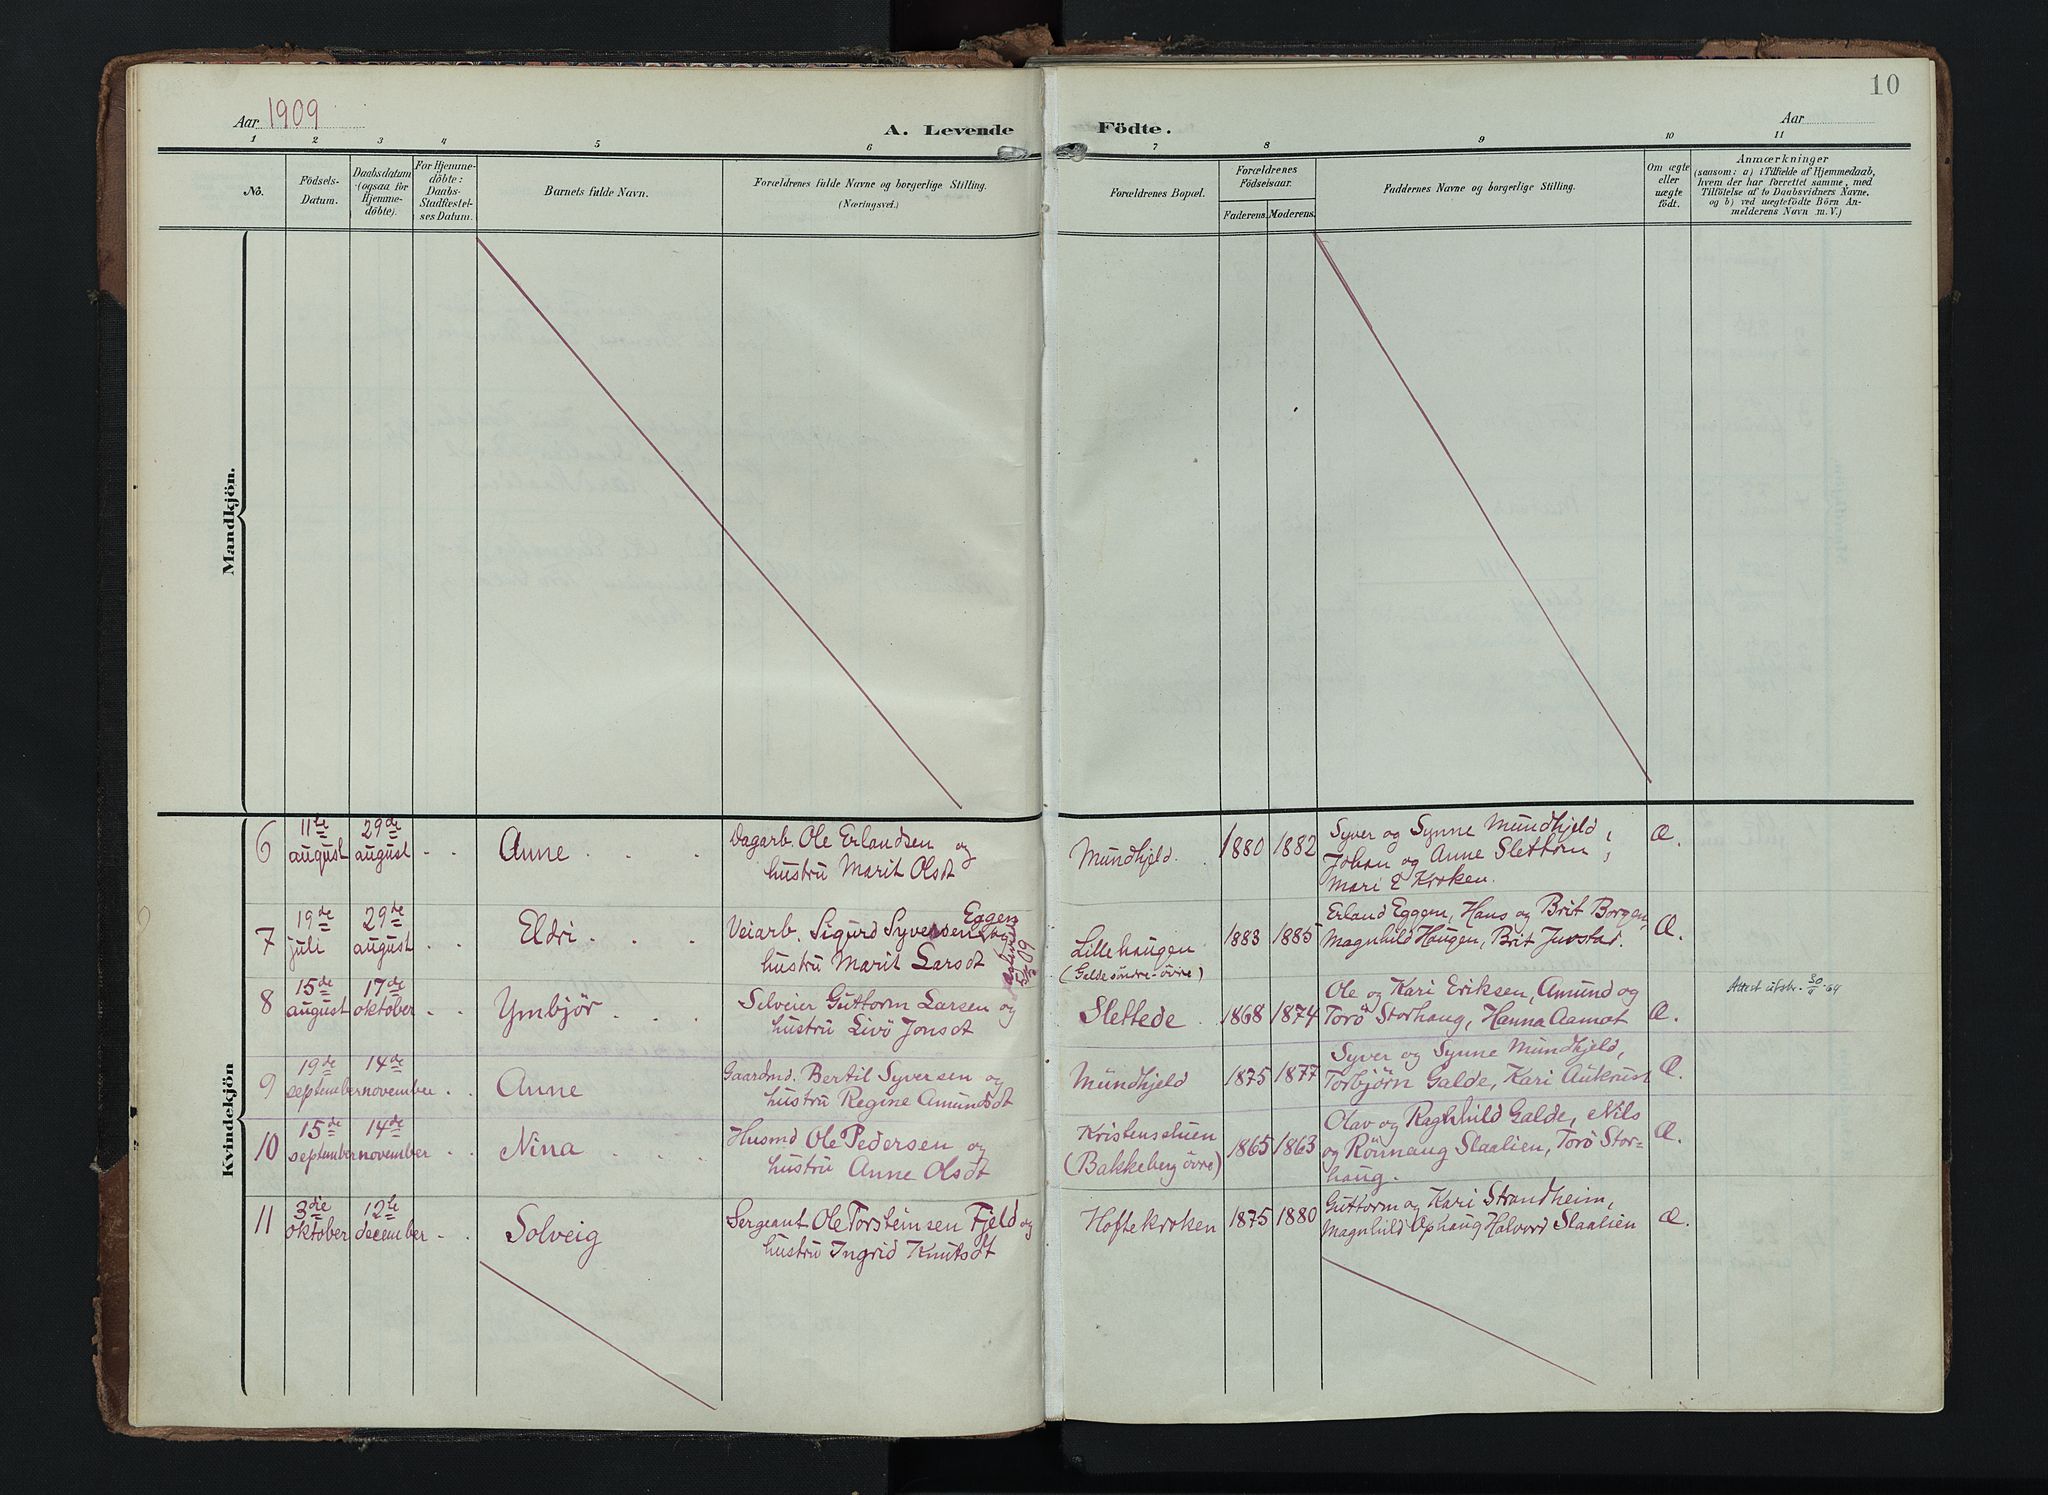 Aar 1909
A. Levende Födte.
10
Aar
1 2 3 4 5 6 7 8 9 10 11
No.
Födsels-
Datum.
Daabsdatum
(ogsaa for
Hjemme-
döbte).
For Hjemme-
döbte:
Daabs-
Stadfæstel-
ses Datum.
Barnets fulde Navn.
Forældrenes fulde Navne og borgerlige Stilling.
(Næringsvei.)
Forældrenes Bopæl.
Forældrenes
Födselsaar.
Faderens. Moderens.
Faddernes Navne og borgerlige Stilling.
Om ægte
eller
uægte
födt.
Anmærkninger
(saasom: a) i Tilfælde af Hjemmedaab,
hvem der har forrettet samme, med
Tilföielse af to Daabsvidners Navne.
og b) ved uægtefödte Börn An-
melderens Navn m. V.)
Mandkjön.
Kvindekjön
6
11te
august
29de
august
Anne
Dagarb. Ole Erlandsen og
hustru Marit Olsdt
Mundhjeld
1880 1882
Syver og Synne Mundhjeld,
Johan og Anne Slettorn,
Mari E Kroken.
Æ.
7
19de
juli
29de
august
Eldri
Veiarb. Sigurd Syversen Eggen og
hustru Marit Larsdt
Lillehaugen
(Galde söndre-övre)
1883 1885
Erland Eggen, Hans og Brit Borgen,
Magnhild Haugen, Brit Juvstad.
Æ.
8
15de
august
17de
oktober
Ymbjör
Selveier Guttorm Larsen og
hustru Livö Jonsdt
Slettede
1868 1874
Ole og Kari Eriksen, Amund og
Torö Storhaug, Hanna Aamot
Æ.
Attest utstr. 30/4-64
9
19de
september
14de
november
Anne
Gaardmd. Bertil Syversen og
hustru Regine Amundsdt
Mundhjeld
1875 1877
Syver og Synne Mundhjeld,
Torbjörn Galde, Kari Aukrust
Æ.
10
15de
september
14de
november
Nina
Husmd Ole Pedersen og
hustru Anne Olsdt
Kristensstuen
(Bakkeberg övre)
1865 1863
Olav og Ragnhild Galde, Nils
og Rönnaug Slaalien, Torö Stor-
haug.
Æ.
11
3die
oktober
12te
december
Solveig
Sergeant Ole Torsteinsen Fjeld og
hustru Ingrid Knutsdt
Hoftekroken
1875 1880
Guttorm og Kari Strandheim,
Magnhild Ophaug Halvord Slaalien
Æ.